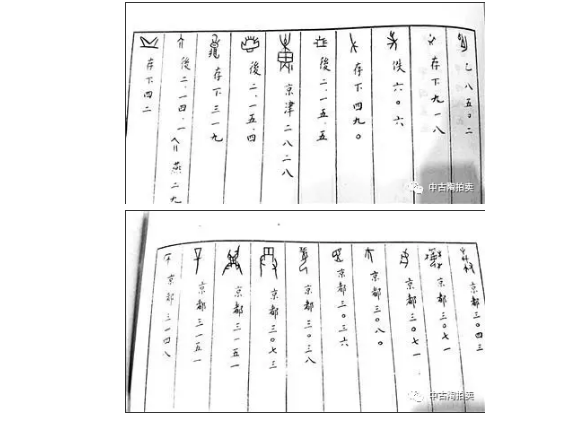 乙八五〇二
存下九一八
佚六〇六
存下四九〇
後二.一五.五
京津二八二八
後二.一五.四
存下三一九
後二.一四.一八 燕二九
存下四二
中古陶拍卖
京都三〇四三
京都三〇七一
京都三〇七一
京都三〇八〇
京都三〇三六
京都三〇三八
京都三〇七三
京都三一五一
京都三一五一
京都三一四八
中古陶拍卖